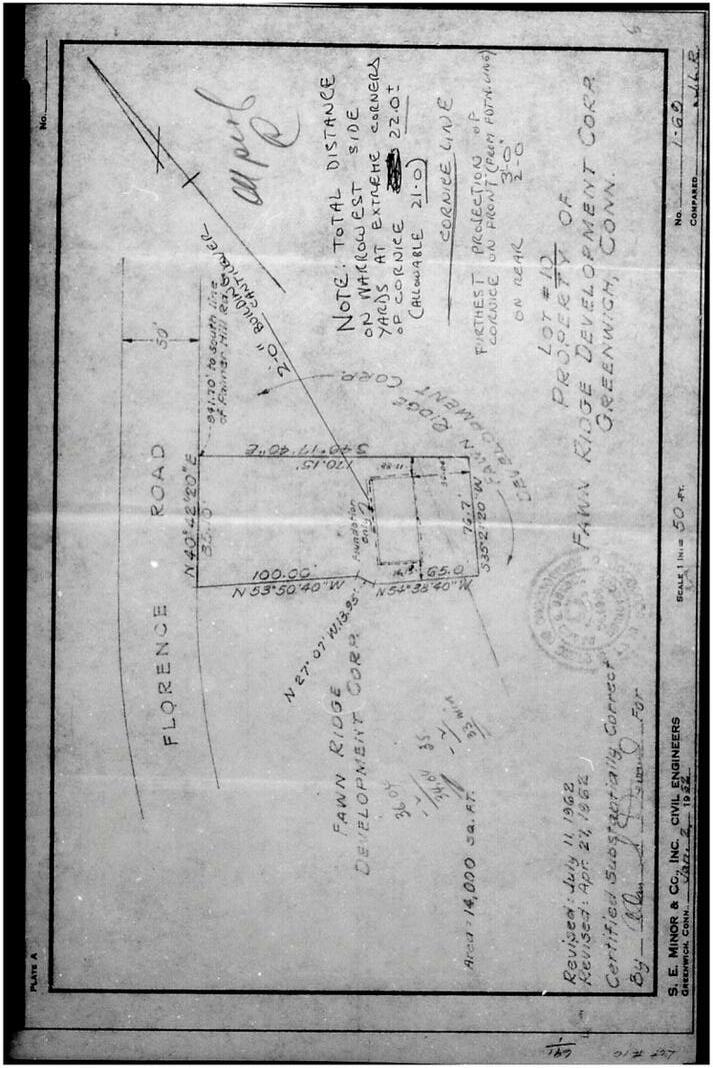 PLATE A
No.
50'
FLORENCE ROAD
941.70' to south line
of Palmer Hill Rd.
2'-0" BUILDING
CANTILEVER
N 40° 42' 20" E
S 40° 17' 40" E
170.15'
100.00'
N 53° 50' 40" W
N 27° 07' W. 13.95'
N 54° 38' 40" W
65.0
76.7'
S 35° 21' 20" W
Foundation
only
FAWN RIDGE
DEVELOPMENT CORP.
FAWN RIDGE
DEVELOPMENT CORP.
NOTE: TOTAL DISTANCE
ON NARROWEST SIDE
YARDS AT EXTREME CORNERS
OF CORNICE 22.0±
(ALLOWABLE 21.0)
CORNICE LINE
FURTHEST PROJECTION OF
CORNICE ON FRONT (FROM FDTN. LINE)
3'-0"
ON REAR 2-0
36.04
34.04
35
33 min
Area = 14,000 sq. FT.
LOT #10
PROPERTY OF
FAWN RIDGE DEVELOPMENT CORP.
GREENWICH, CONN.
Revised: July 11, 1962
Revised: Apr. 27, 1962
Certified Substantially Correct
By For
S. E. MINOR & CO., INC. CIVIL ENGINEERS
GREENWICH, CONN. Jan. 2, 1962
SCALE 1 IN. = 50 FT.
No. 1-60
COMPARED
LOT #10